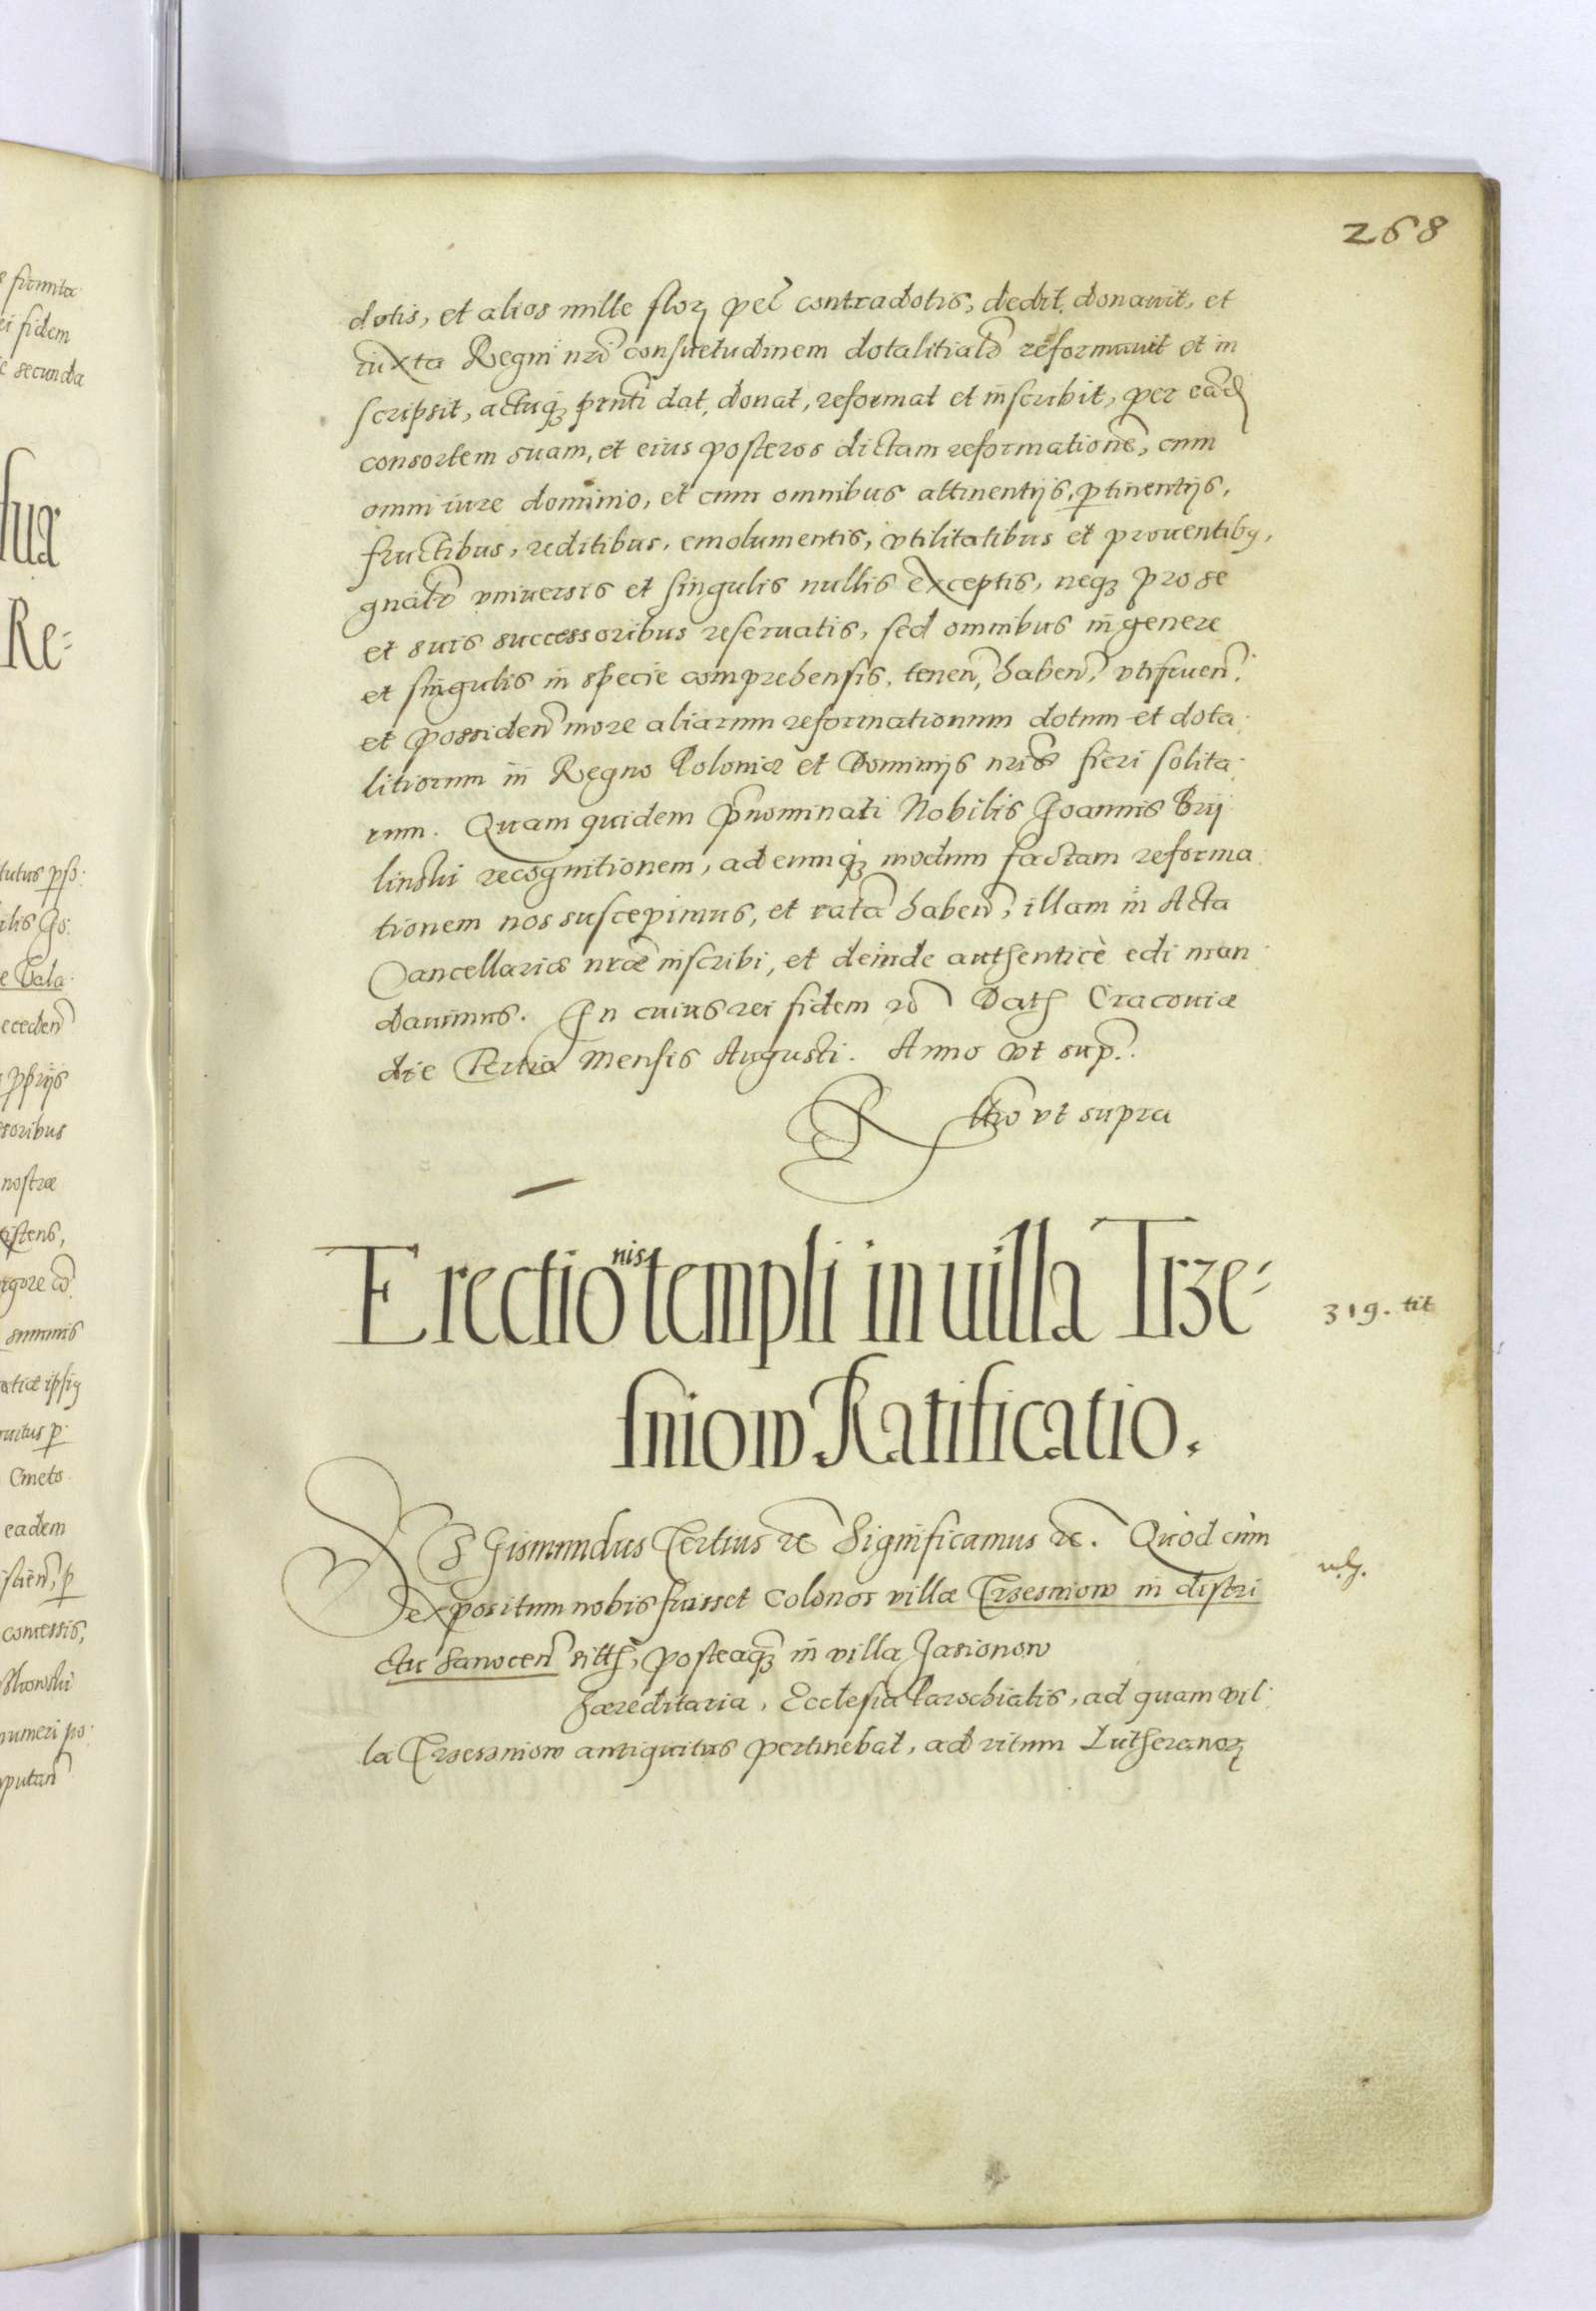 268
dotis, et alios mille floꝝ peͨ contradotis, dedit, donauit, et
iuxta Regni nrĩ consuetudinem dotalitialr̃ reformauit et in
scripsit, actuqꝫ pñti dat, donat, reformat et inscribit, per eãd
consortem suam, et eius posteros dictam reformationẽ, cum
omni iure dominio, et cum omnibus attinentijs, ꝑtinentijs,
fructibus, reditibus, emolumentis, vtilitatibus et prouentibꝰ,
gñalr̃ vniuersis et singulis nullis exceptis, neqꝫ pro se
et suis successoribus reseruatis, sed omnibus in genere
et singulis in specie comprehensis, teneñ, habeñ, vtifrueñ.
et possideñ more aliarum reformationum dotum et dota
litiorum in Regno Poloniæ et Dominijs nrĩs fieri solita
rum. Quam quidem p̃nominati Nobilis Joannis Brij
linski recognitionem, ad eumqꝫ modum factam reforma
tionem nos suscepimus, et ratã habeñ, illam in Acta
Cancellariæ nrãe inscribi, et deinde authenticè edi man
dauimus. In cuius rei fidem rc̃ Datꝭ Cracouiæ
die Tertia Mensis Augusti. Anno vt sup.
R ltio vt supra
Erectionis templi in uilla Trze-
sniow Ratificatio.
319. tit
Sigismundus Tertius rc̃ Significamus rc̃. Quòd cùm
expositum nobis fuisset Colonos villæ Trzesniow in distri
ctu Sanoceñ sittꝭ, posteaqꝫ in villa Jasionow
hæreditaria, Ecclesia Parochialis, ad quam vil
la Trzesniow antiquitus pertinebat, ad ritum Lutheranoꝝ